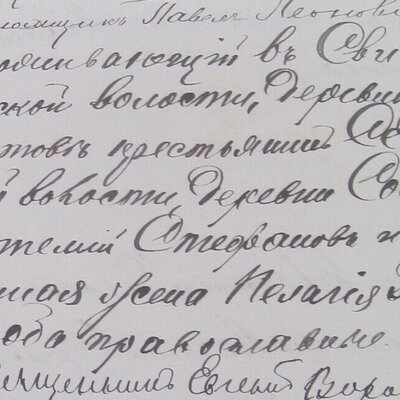 ломщикъ Павелъ Леонов
роживающій въ Сви
ской волости, Деревни
товъ крестьянинъ
й волости, Деревни Со
ртемій Стефановъ и
нная жена Пелагія
оба православные.
Священникъ Евгеній Воро